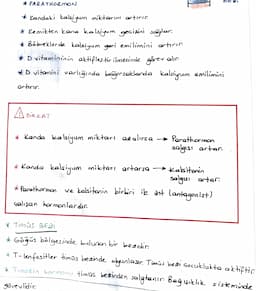 * PARATHORMON
* Kandaki kalsiyum miktarını artırır.
* Kemikten kana kalsiyum geçişini sağlar.
* Böbreklerde kalsiyum geri emilimini artırır.
* D vitamininin aktifleştirilmesinde görev alır.
* D vitamini varlığında bağırsaklarda kalsiyum emilimini
artırır.
DİKKAT
* Kanda kalsiyum miktarı azalırsa → Parathormon
salgısı artar.
* Kanda kalsiyum miktarı artarsa → Kalsitonin
salgısı artar.
* Parathormon ve kalsitonin birbiri ile zıt (antagonist)
çalışan hormonlardır.
* TİMÜS BEZİ
* Göğüs bölgesinde bulunan bir bezdir.
* T-lenfositler timüs bezinde olgunlaşır. Timüs bezi çocuklukta aktiftir.
* hormonu timüs bezinden salgılanır. Bağışıklık sisteminde
görevlidir.